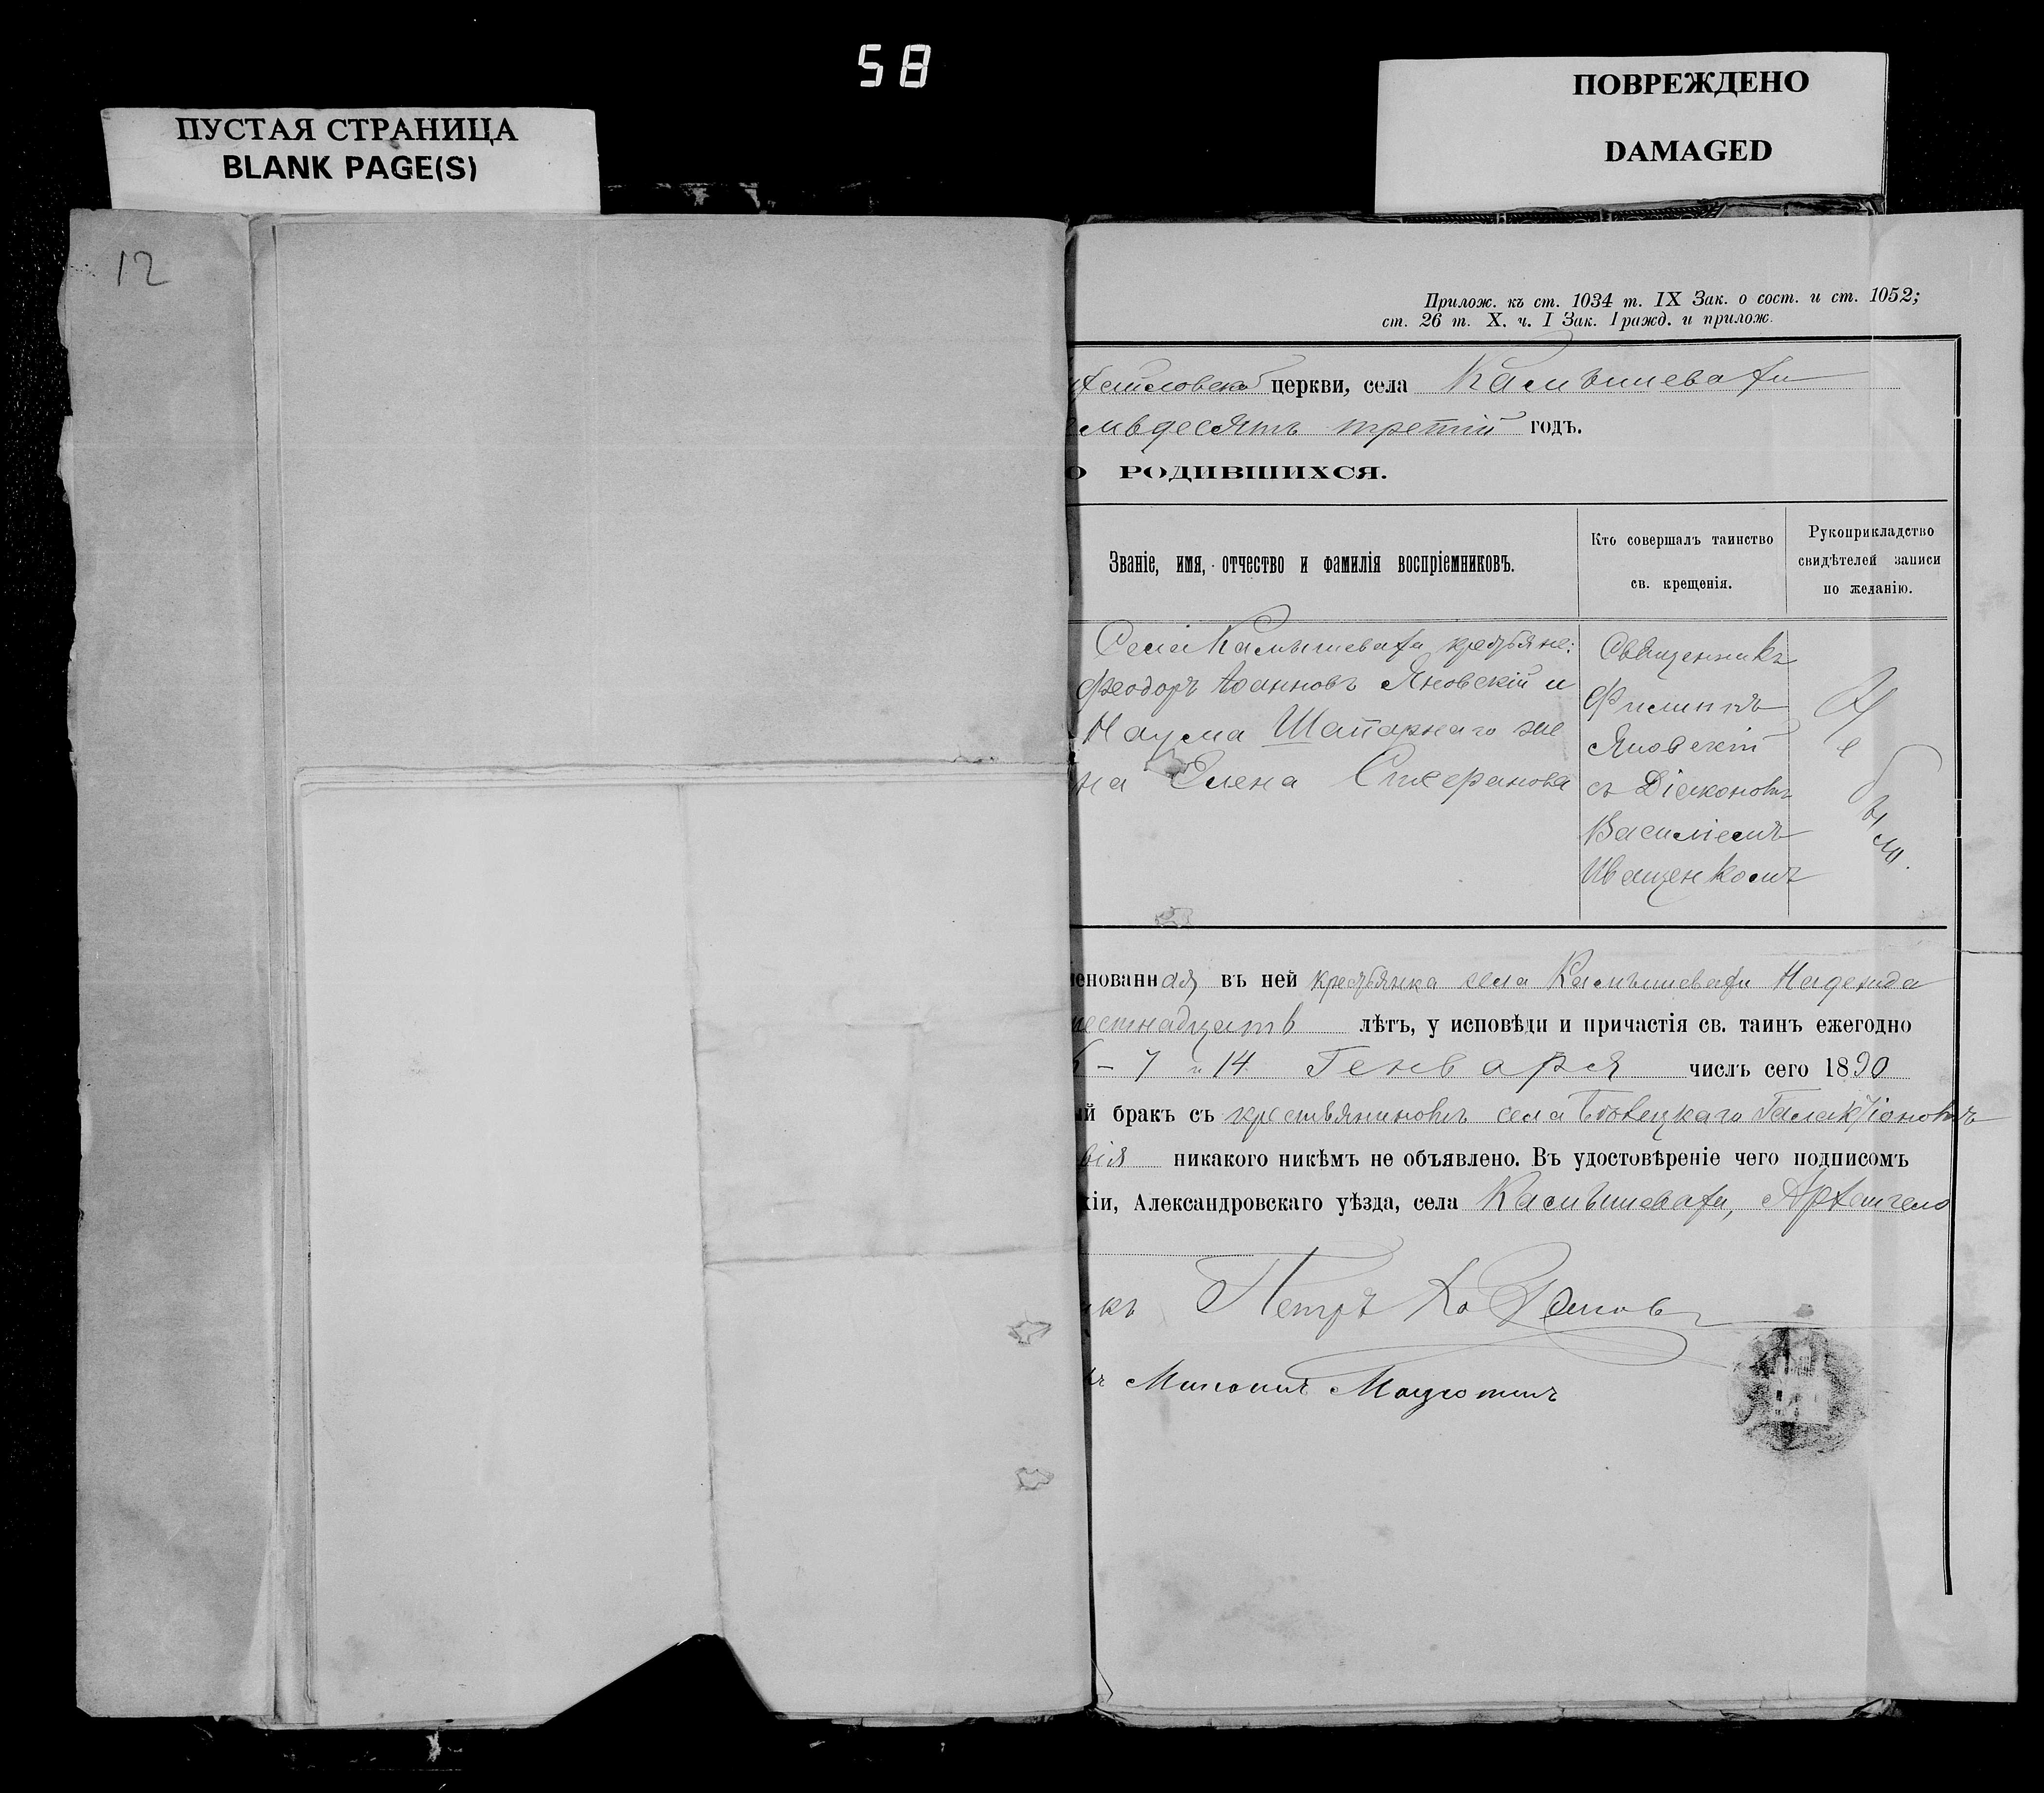 58
ПУСТАЯ СТРАНИЦА
BLANK PAGE(S)
ПОВРЕЖДЕНО
DAMAGED
12
Прилож. къ ст. 1034 т. IX Зак. о сост. и ст. 1052;
ст. 26 т. X. ч. I Зак. Гражд. и прилож.
хайловской церкви, села Камышевахи
семьдесятъ третій годъ.
О РОДИВШИХСЯ.
Званіе, имя, отчество и фамилія воспріемниковъ.
Кто совершалъ таинство
св. крещенія.
Рукоприкладство
свидѣтелей записи
по желанію.
Села Камышевахи крестьяне:
Феодоръ Іоанновъ Яновскій и
Наума Шапарнаго же
на Елена
Священникъ
Филиппъ
Яновскій
съ Діякономъ
Василіемъ
Иващенкомъ
Не
было.
енованная въ ней крестьянка села Камышевахи Надежда
шестнадцать лѣтъ, у исповѣди и причастія св. таинъ ежегодно
– 7 и 14 Генваря числъ сего 1890
ій бракъ съ крестьяниномъ села Галактіономъ
вія никакого никѣмъ не объявлено. Въ удостовѣреніе чего подписомъ
хіи, Александровскаго уѣзда, села Камышевахи, Архангело
икъ Петръ